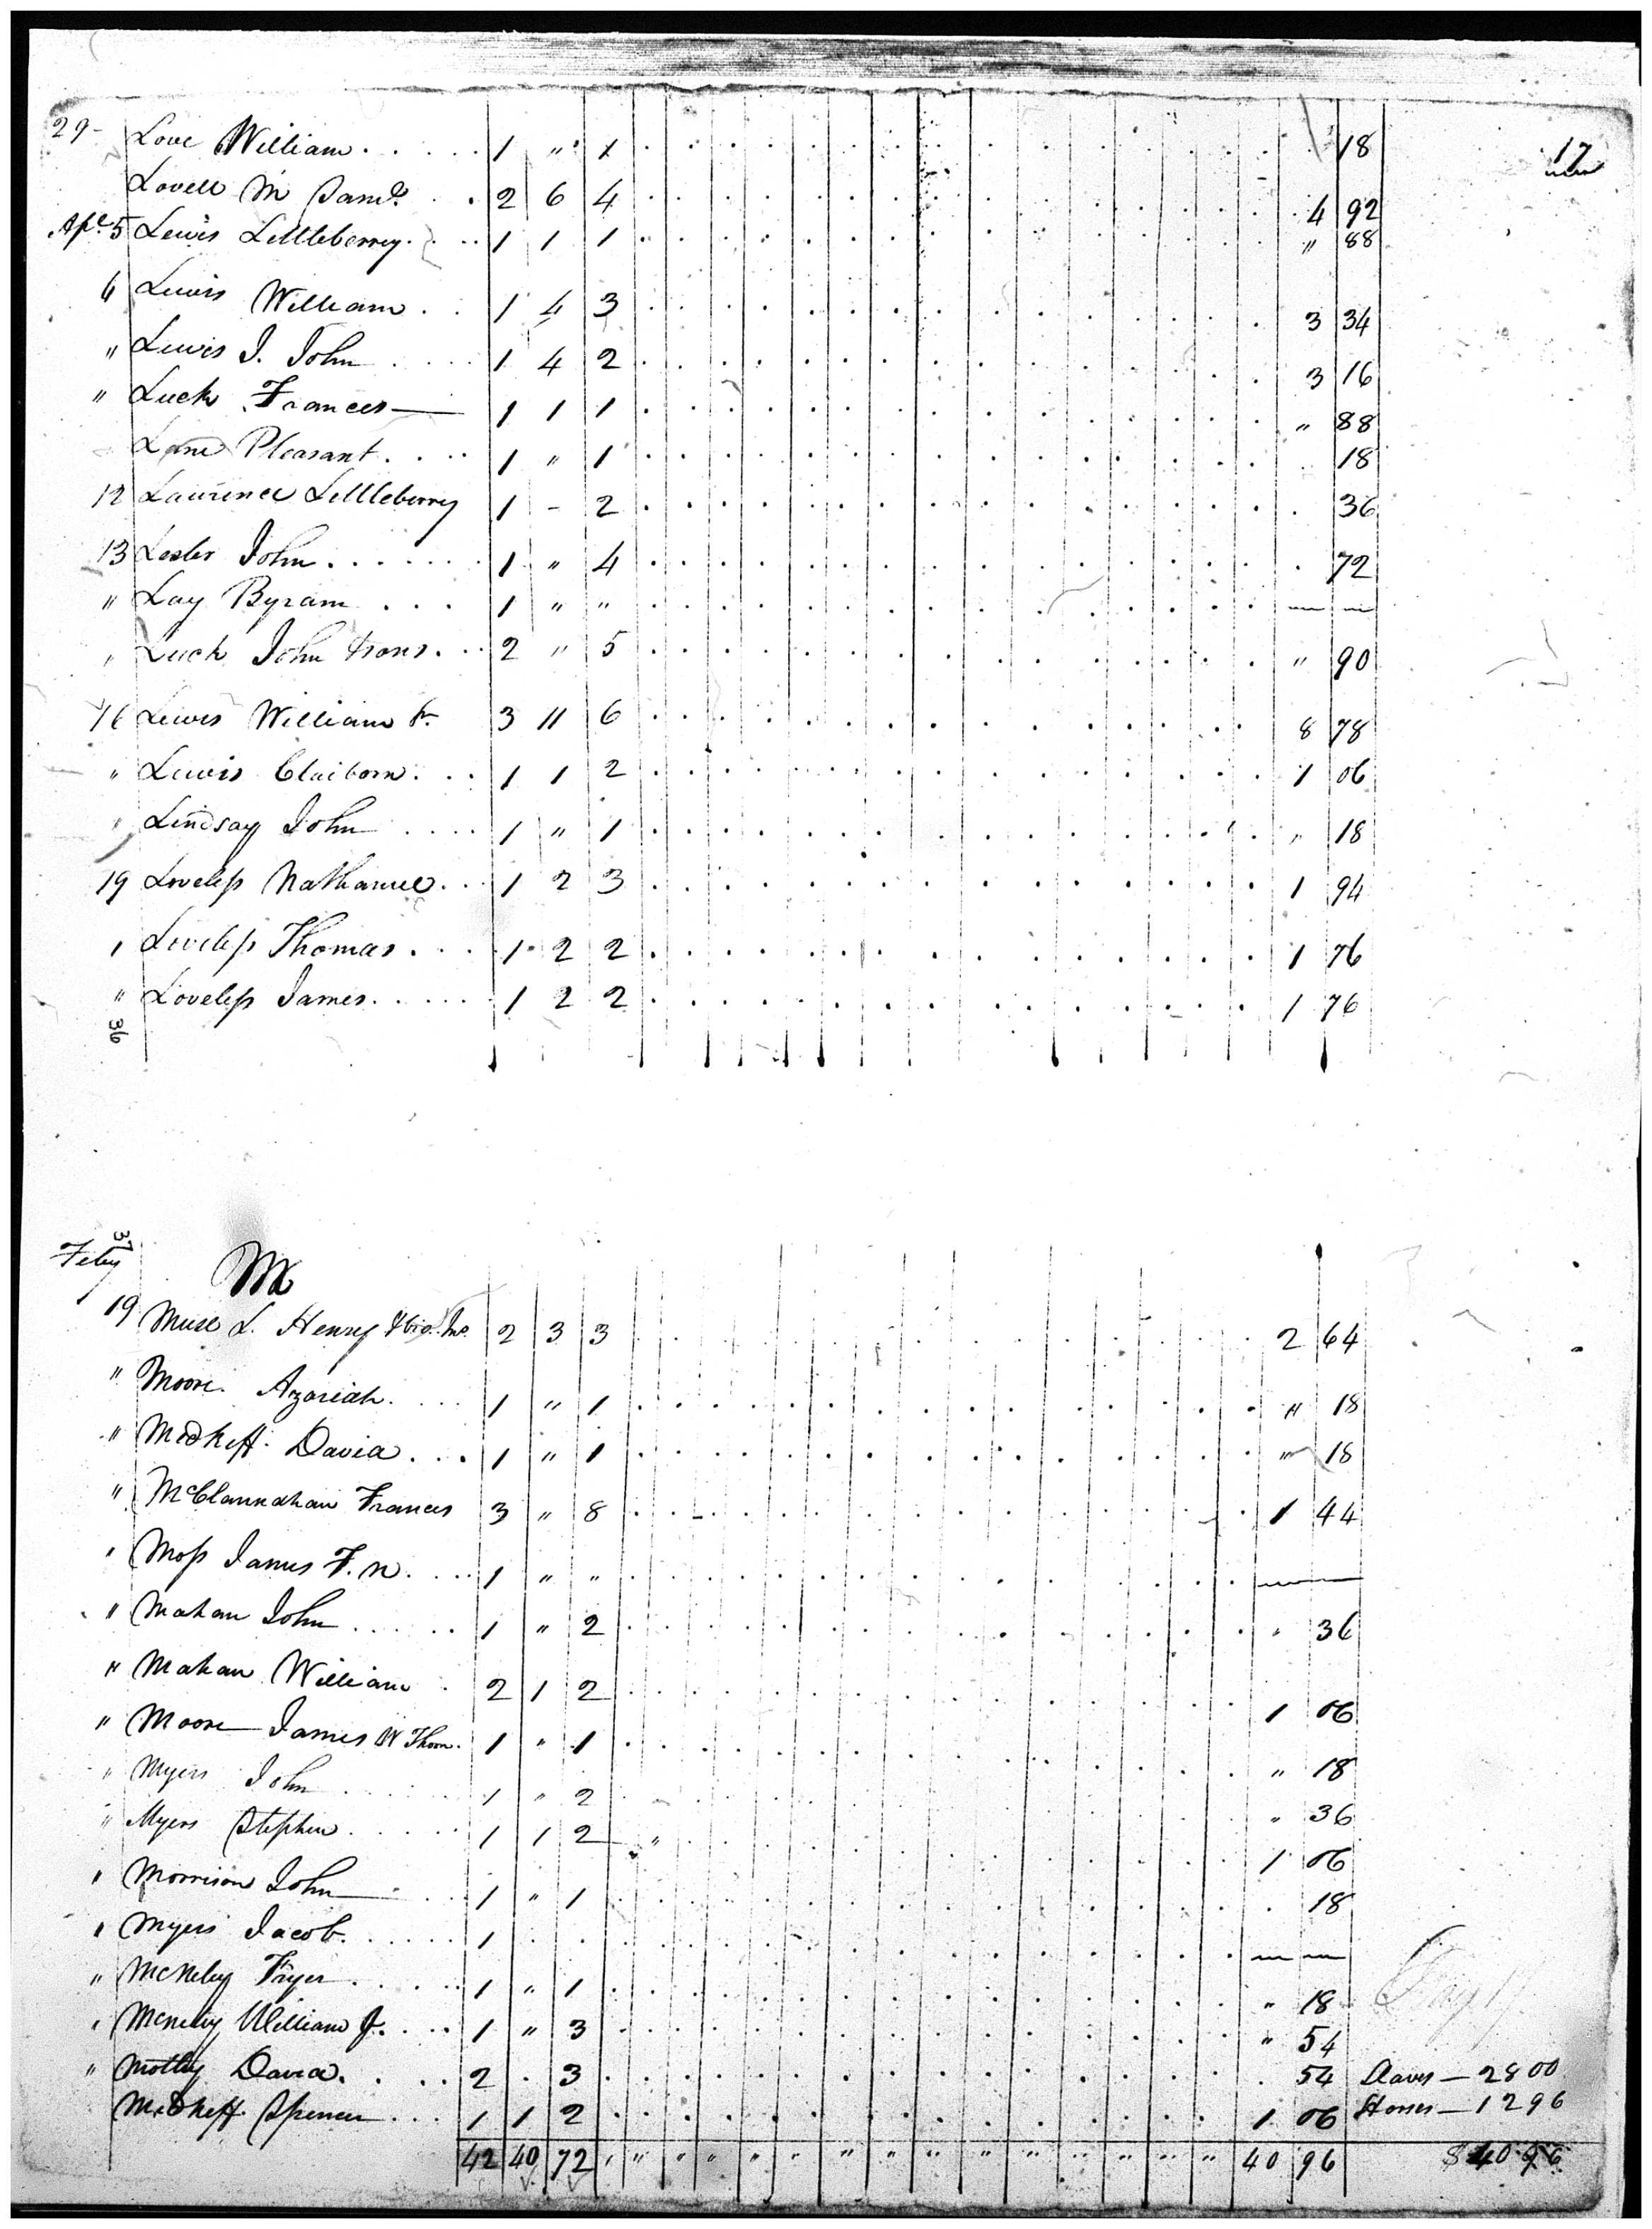 17
29 - Love William . . . . . 1 " 1 18
Lovell M Saml. . . 2 6 4 4 92
Apl. 5 Lewis Littleberry . . . 1 1 1 " 88
6 Lewis William . . 1 4 3 3 34
" Lewis J. John . . . 1 4 2 3 16
" Luck Frances — 1 1 1 " 88
Pleasant . . . . 1 " 1 18
12 Laurence Littleberry 1 - 2 36
13 Lester John . . . . . . 1 " 4 72
" Lay Byram . . . 1 " " — —
" Luck John . . 2 " 5 " 90
16 Lewis William 3 11 6 8 78
" Lewis Claiborn . . . 1 1 2 1 06
Lindsay John . . . . 1 " 1 " 18
19 Loveless Nathaniel . . 1 2 3 1 94
" Loveless Thomas . . . 1 2 2 1 76
" Loveless James . . . . . 1 2 2 1 76
36
37
Feby
M
19 Muse L. Henry 2 3 3 2 64
" Moore Azariah . . . . 1 " 1 " 18
" Medkeff David . . . 1 " 1 " 18
" McClannahan Frances 3 " 8 1 44
" Moss James F. N. . . . 1 " " —
" Mahan John . . . . . 1 " 2 " 36
" Mahan William . 2 1 2 1 06
" Moore James W Thom. 1 " 1 " 18
" Myers John . . . . 1 " 2 " 36
" Myers Stephen . . . . . 1 1 2 " 1 06
" Morrison John 1 " 1 18
" Myers Jacob . . . . . 1 — —
" McNeley Fryer . . . . . 1 " 1 " 18
" McNeley William J. . . . 1 " 3 " 54
" Motley David . . . . 2 . 3 54 Slaves — 28 00
Medkeff Spencer . . . 1 1 2 1 06 Horses — 12 96
42 40 72 " " " " " " " " " " " " " " 40 96 $ 40 96